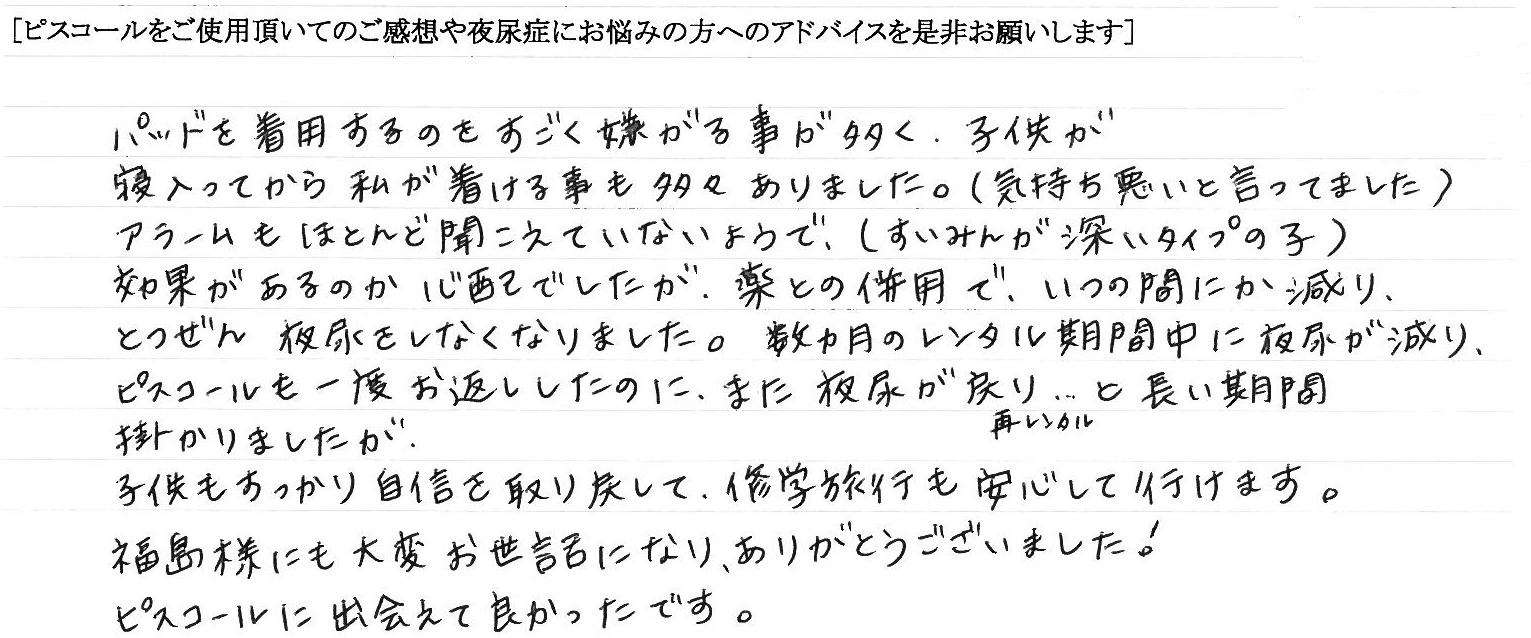 [ピスコールをご使用頂いてのご感想や夜尿症にお悩みの方へのアドバイスを是非お願いします]
パッドを着用するのをすごく嫌がる事が多く、子供が
寝入ってから私が着ける事も多々ありました。(気持ち悪いと言ってました)
アラームもほとんど聞こえていないようで、(すいみんが深いタイプの子)
効果があるのか心配でしたが、薬との併用で、いつの間にか減り、
とつぜん夜尿をしなくなりました。数ヵ月のレンタル期間中に夜尿が減り、
ピスコールも一度お返ししたのに、また夜尿が戻り…と長い期間
再レンタル
掛かりましたが、
子供もすっかり自信を取り戻して、修学旅行も安心して行けます。
福島様にも大変お世話になり、ありがとうございました!
ピスコールに出会えて良かったです。